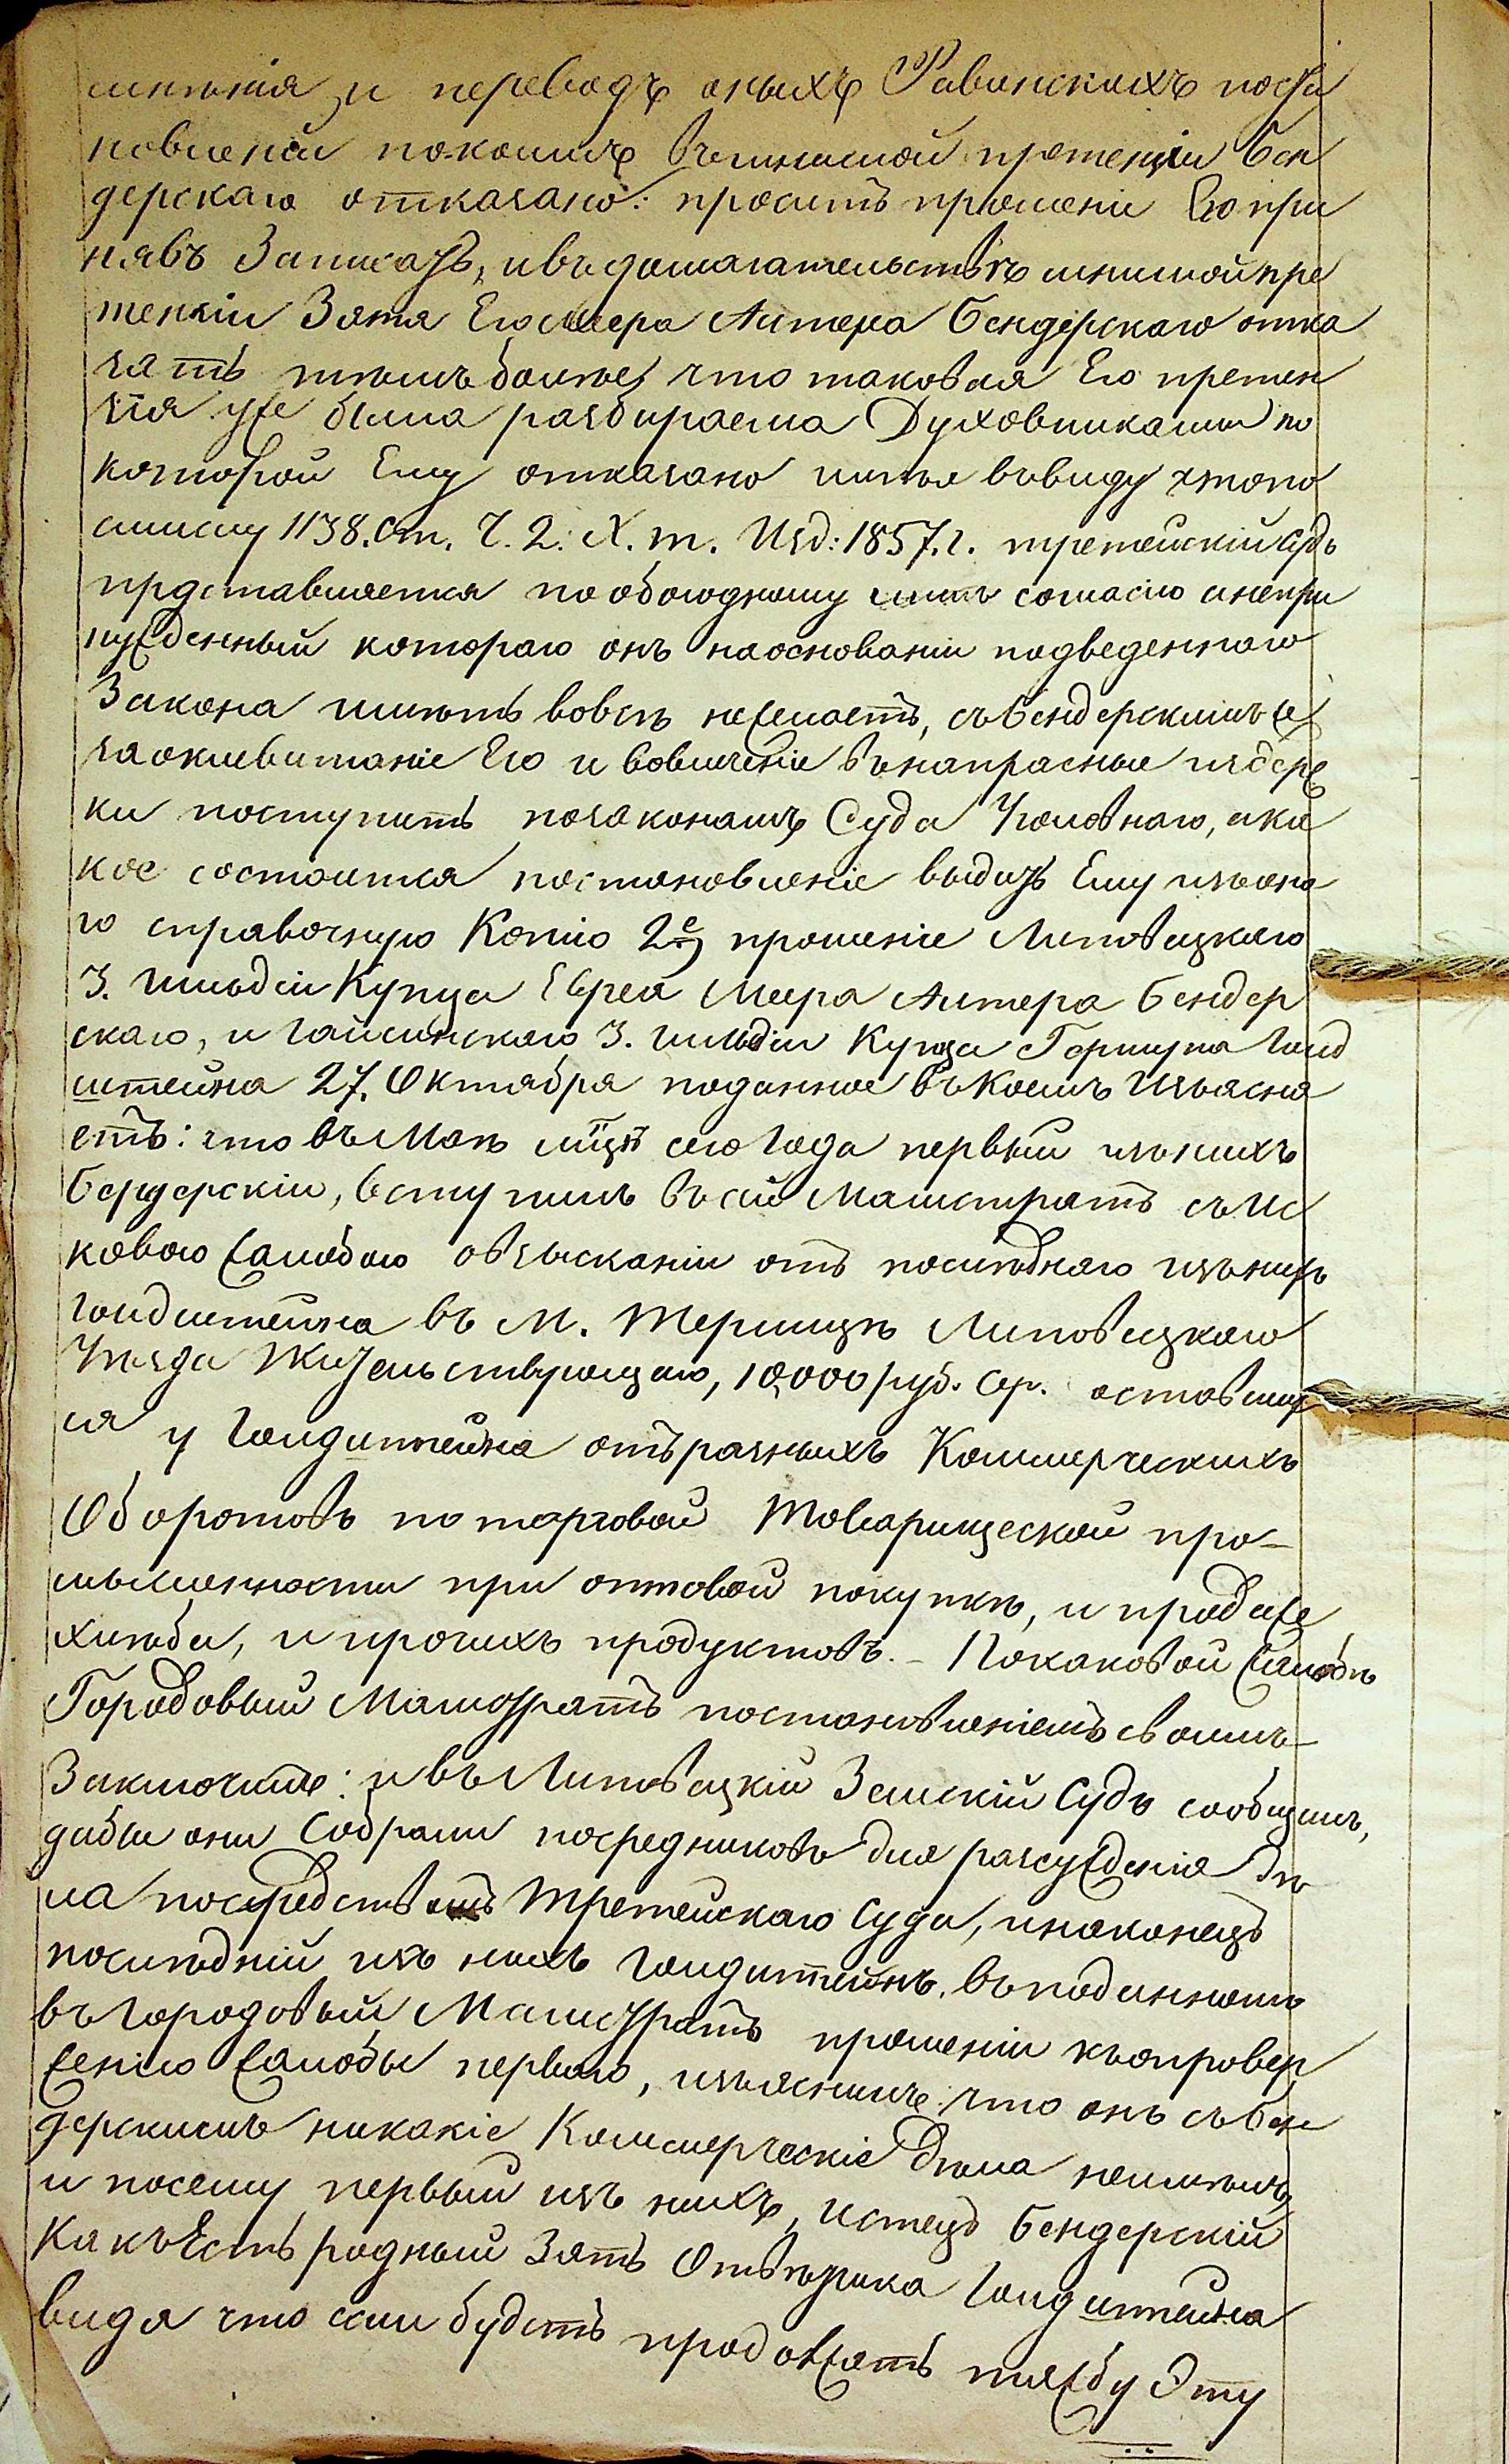 шенія, и переводъ оныхъ Равинскихъ поста
новленій по коимъ въ мнимой претензіи Бен
дерскаго отказано: просить прошеніе Его при
нявъ Записать, и въ домагательствѣ мнимой пре
тензіи Зятя Его Меера Алтера Бендерскаго отка
зать тѣмъ болѣе, что таковая Его претен
зія уже была разбираема Духовниками по
которой Ему отказано имѣя въ виду что по
смыслу 1138. ст. Ч. 2. X. т. Изд: 1857. г. третейскій судъ
прдставляется по обоюдному согласію и непри
нужденный котораго онъ на основаніи подведеннаго
Закона имѣть вовсѣ нежелаетъ, съ Бендерскимъ же
за оклеветаніе Его и вовлеченіе въ напрасные издерж
ки поступить по законамъ Суда Уголовнаго, и ка
кое состоится постановленіе выдать Ему изъ она
го справочную Копію 2е прошеніе Липовецкаго
3. гильдіи Купца Еврея Меера Алтера Бендер
скаго, и Гайсинскаго 3. гильдіи Купца Гершуна Голд
штейна 27. Октября поданное въ Коемъ Изъясня
етъ: что въ Маѣ м͠цѣ сего Года первый изъ нихъ
Бендерскій, вступилъ въ сей Магистратъ съ Ис
ковою жалобою о взысканіи отъ послѣдняго изъ нихъ
Голдштейна въ М. Терлицѣ Липовецкаго
Уѣзда Жительствующаго, 10,000 руб. сер. оставших
ся у Голдштейна отъ разныхъ Коммерческихъ
Оборотовъ по торговой Товарищеской про-
мышленности при оптовой покупкѣ, и продаже
хлѣба, и прочихъ продуктовъ. - По каковой жалобѣ
Городовый Магистратъ постановленіемъ своимъ
Заключилъ: и въ Липовецкій Земскій Судъ сообщилъ,
дабы они Собрали посредниковъ для разсужденія дѣ
ла посредствомъ Третейскаго Суда, и наконецъ
послѣдній изъ нихъ Голдштейнъ въ поданномъ
въ Городовый Магистратъ прошеніи къ опровер
женію жалобы перваго, изъяснилъ: что онъ съ Бен
дерскимъ никакіе Коммерческіе дѣла неимѣлъ,
и посему первый изъ нихъ, истецъ Бендерскій
Какъ Есть родный Зять Отвѣтчика Голдштейна
видя что если будетъ продолжать тяжбу Эту